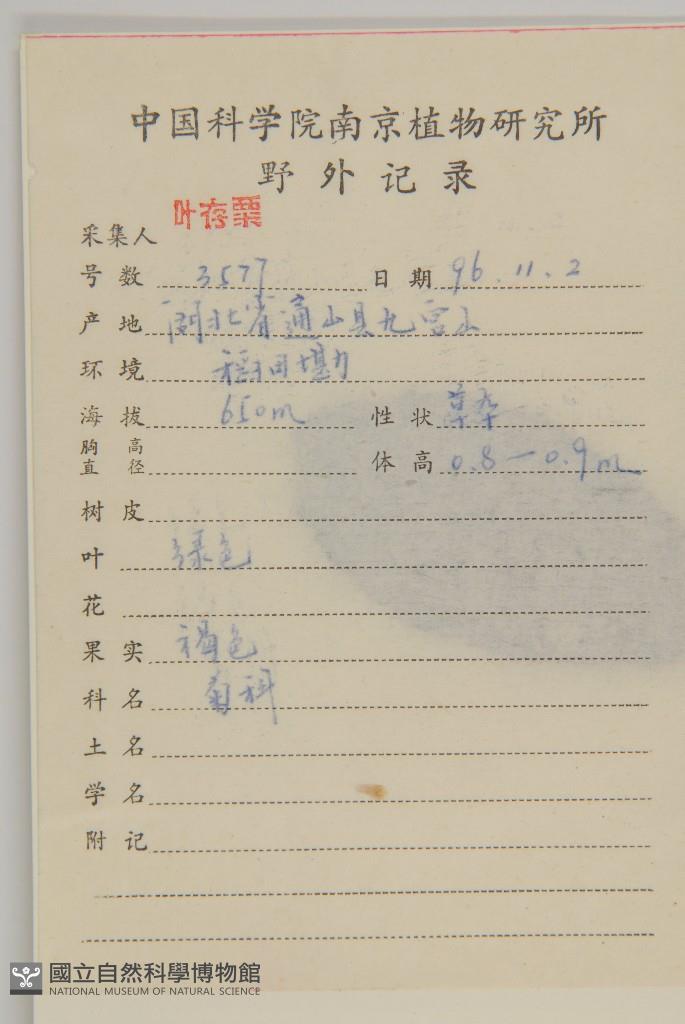 中国科学院南京植物研究所
野外记录
采集人 叶存粟
号数 3577 日期 96.11.2
产地 湖北省通山县九宫山
环境 稻田墈
海拔 650m 性状 草本
胸高直径 体高 0.8—0.9m
树皮
叶 绿色
花
果实 褐色
科名 菊科
土名
学名
附记
國立自然科學博物館
NATIONAL MUSEUM OF NATURAL SCIENCE